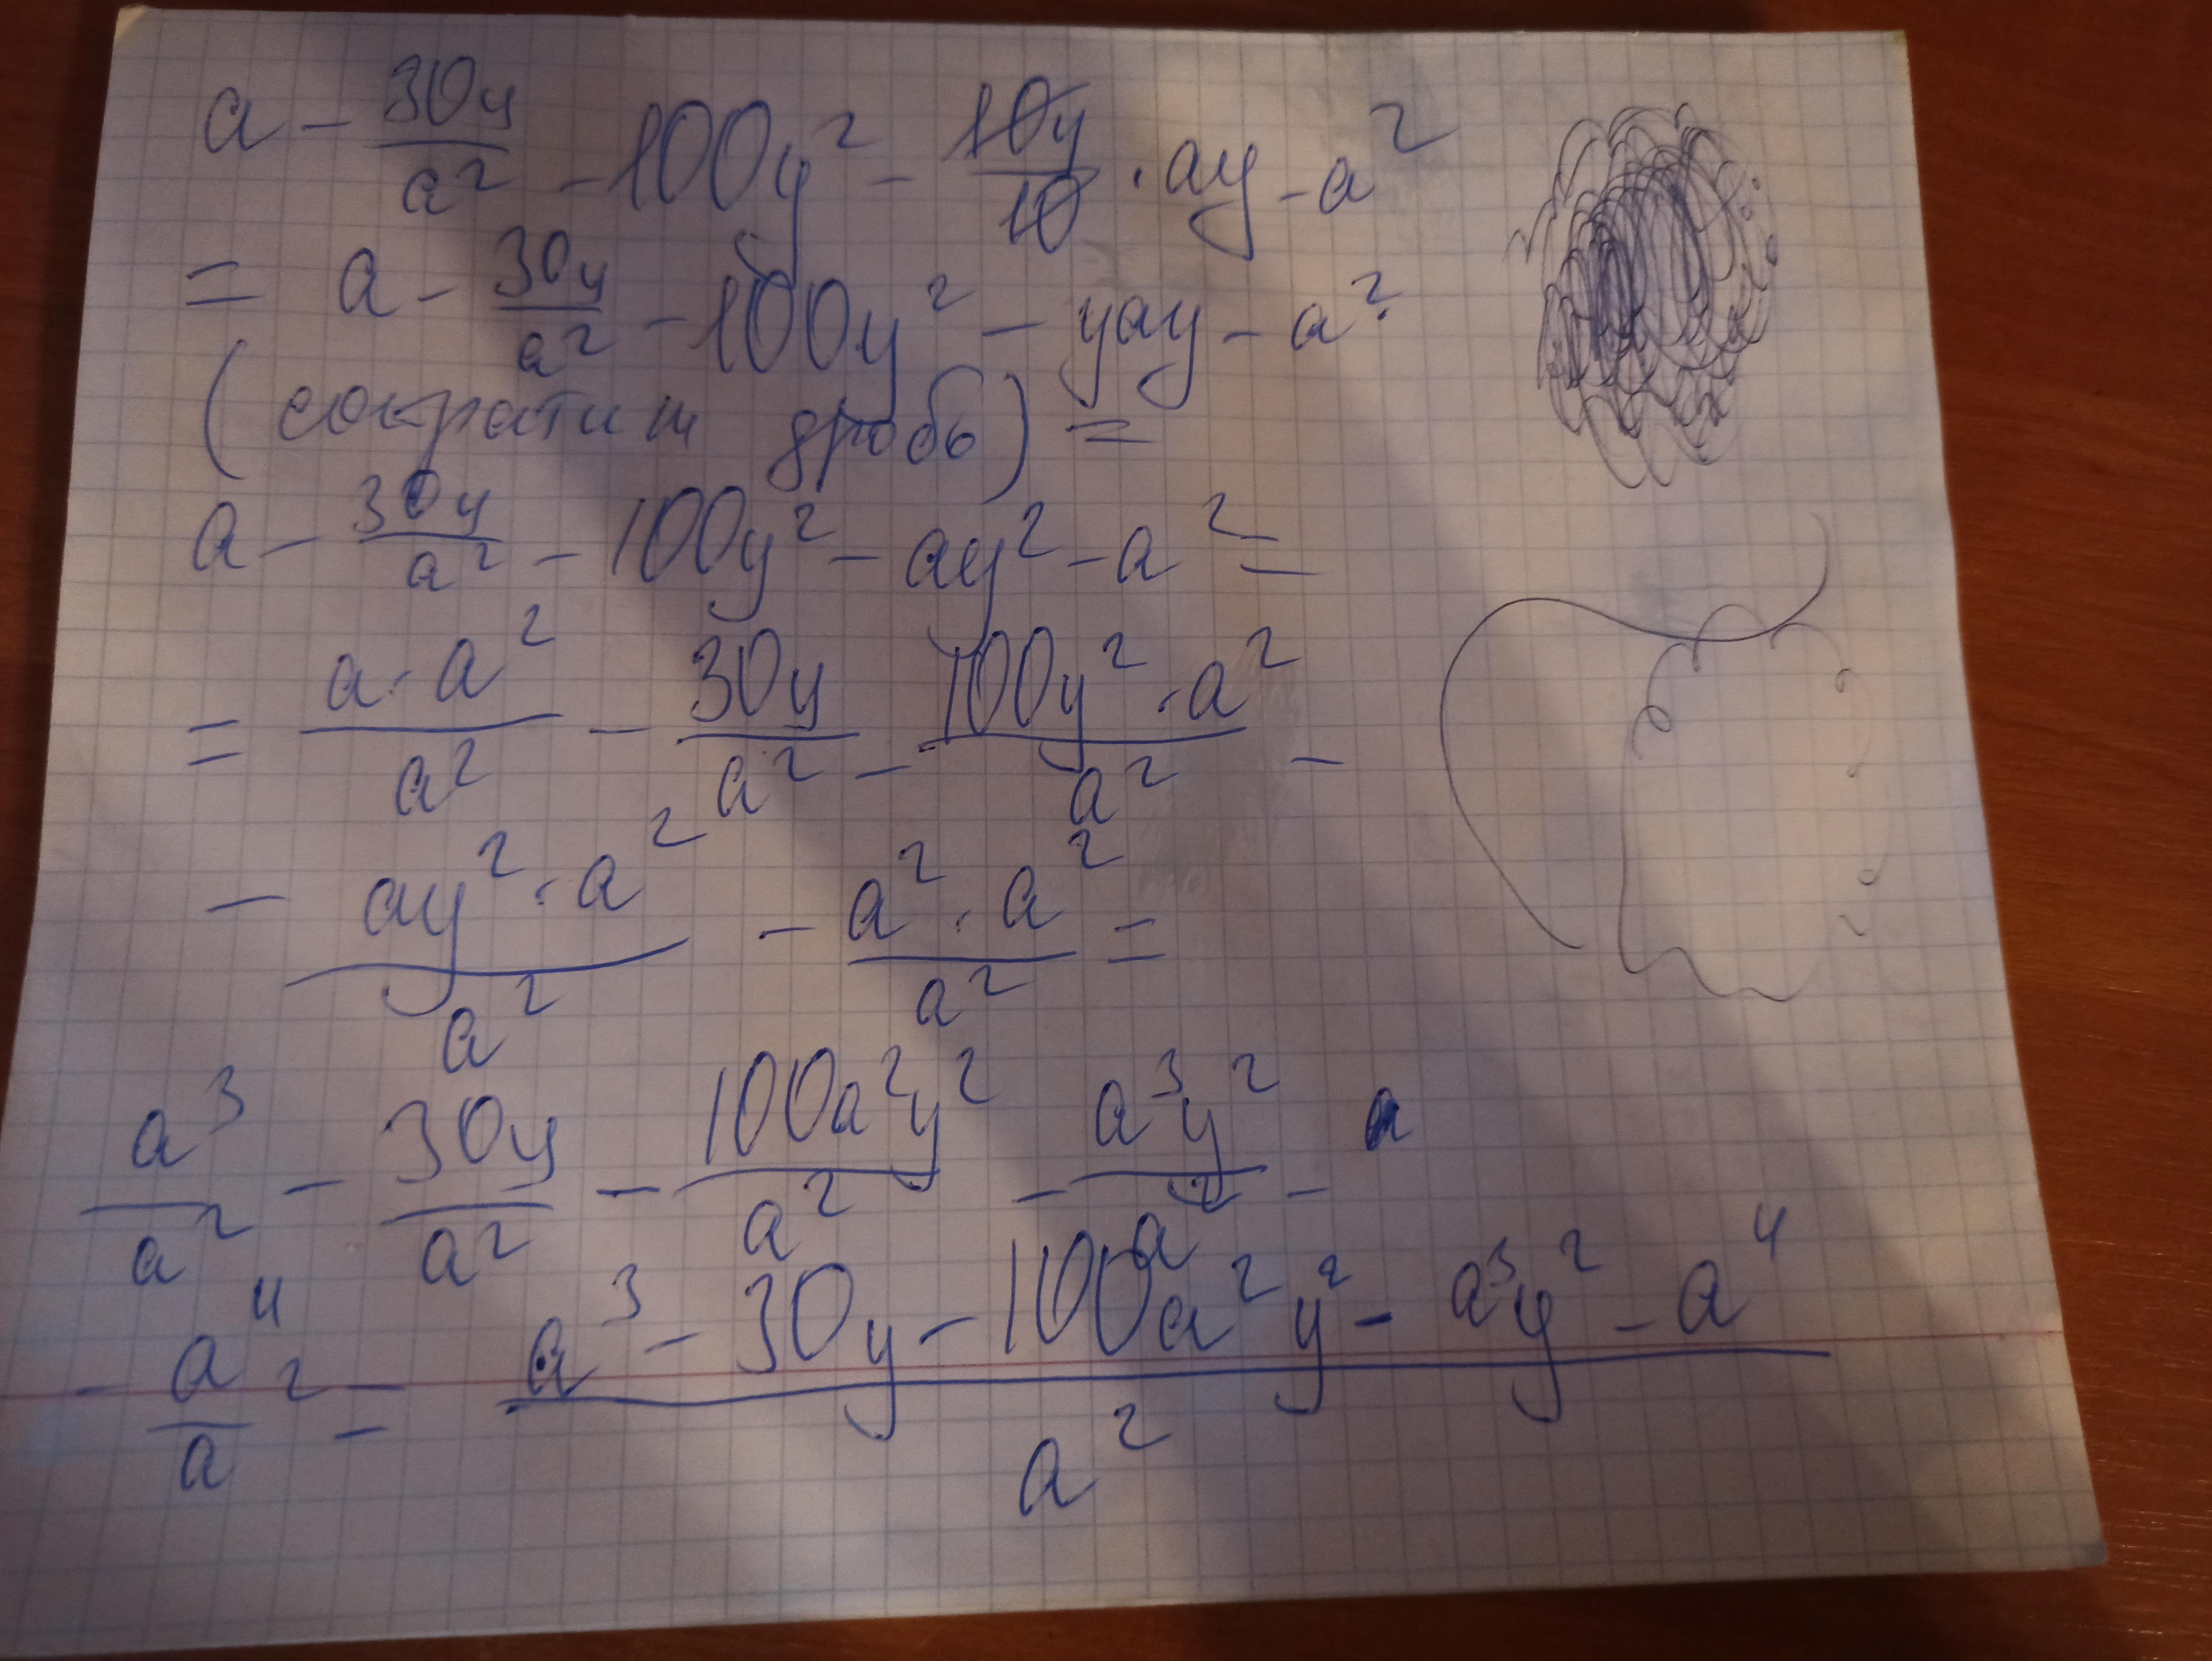 a - 30y/a² - 100y² - 10y/10 · ay - a²
= a - 30y/a² - 100y² - yay - a²
(сократим дробь) =
a - 30y/a² - 100y² - ay² - a² =
= a · a²/a² - 30y/a² - 100y² · a²/a² -
- ay² · a²/a² - a² · a²/a² =
a³/a² - 30y/a² - 100a²y²/a² - a³y²/a² -
- a⁴/a² = a³ - 30y - 100a²y² - a³y² - a⁴/a²